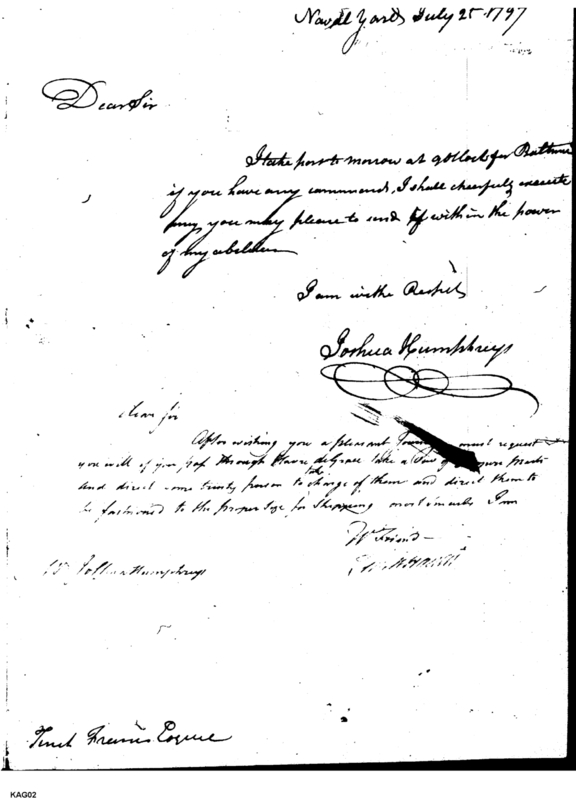 Naval Yard July 25 1797
Dear Sir
I take post to morrow at 9 oClock for Baltimore
if you have any commands, I shall cheerfuly execute
any you may please to send if within the power
of my
I am with Respect
Joshua Humphreys
Dear Sir
After wishing you a pleasant must request
you will if you pass through Havre de Grace take a of
and direct some trusty person to take charge of them and direct them to
be fashioned to the proper size for Shipping I am
Yr Friend
Joshua Humphreys
Tench Francis Esquire
KAG02